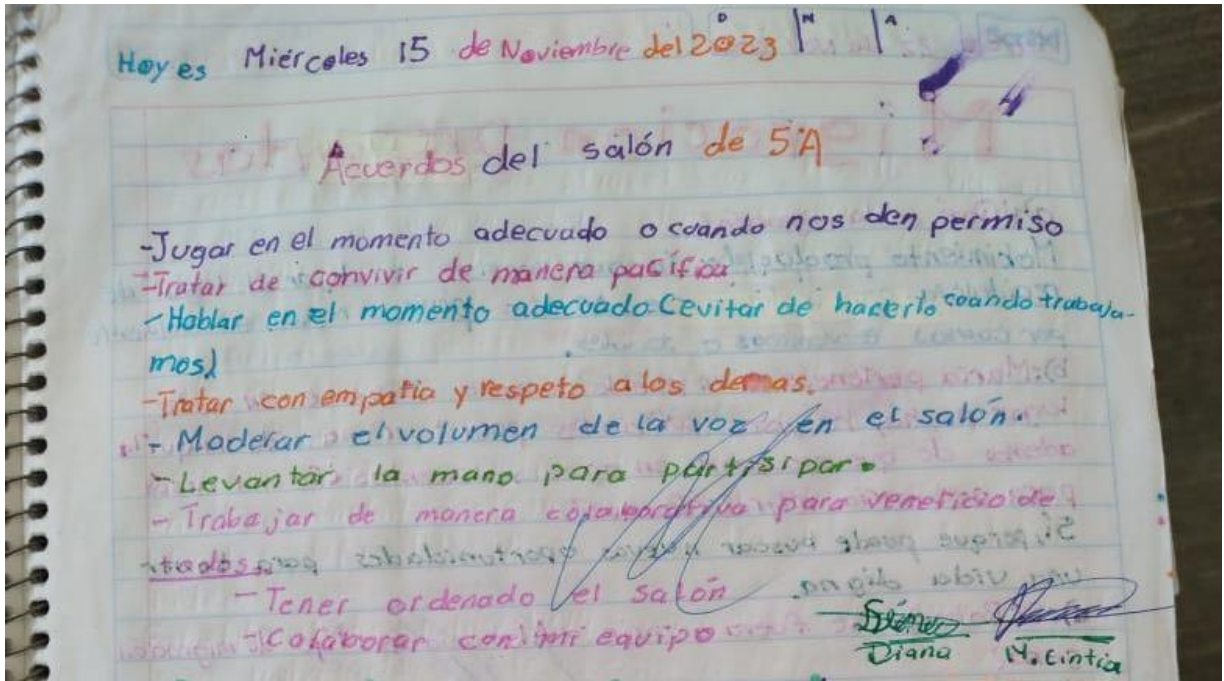 D M A
Hoy es Miércoles 15 de Noviembre del 2023
Acuerdos del salón de 5°A
-Jugar en el momento adecuado o cuando nos den permiso
-Tratar de convivir de manera pacifica
-Hablar en el momento adecuado (evitar de hacerlo cuando trabaja-
mos)
-Tratar con empatia y respeto a los demas.
- Moderar el volumen de la voz en el salón.
-Levantar la mano para partisipar.
- Trabajar de manera colaborativa para veneficio de
todos
- Tener ordenado el salón
- Colaborar con mi equipo
Diana M. Cintia